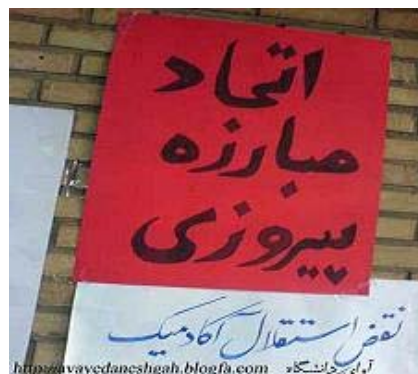 اتحاد
مبارزه
پیروزی
نقض استقلال آکادمیک
آوای دانشگاه http://avayedaneshgah.blogfa.com